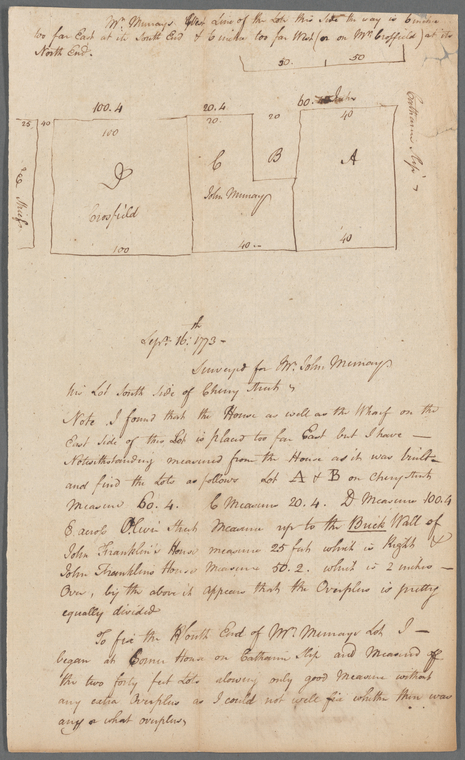 Mr. Murrays Line of the Lots this Side the way is 6 inches
too far East at its South End & 6 inches too far West (or on Mr. Crosfield) at the
North End.
50. 50
100.4 20.4 60.
25 40 100 20. 20 40
D C B A
Crosfield John Murray
100 40 40
Septr. 16th. 1773
Survey'd for Mr. John Murray
his Lot South Side of Cherry Street
Note I found that the House as well as the Wharf on the
East Side of this Lot is placed too far East but I have
Notwithstanding measured from the House as it was built
and find the Lots as follows Lot A & B on Cherry Street
Measure 60.4. C Measures 20.4. D Measure 100.4
& across Oliver Street Measure up to the Brick Wall of
John Franklin's House measures 25 feet which is Right &
John Franklins House Measure 50.2. which is 2 inches
Over, by the above it appears that the Overplus is pretty
equally divided
To fix the South End of Mr. Murrays Lot I
began at Corner House on Catharin Slip and Measured off
the two forty feet Lots alowing only good Measure without
any extra Overplus as I could not well fix whether there was
any or what overplus